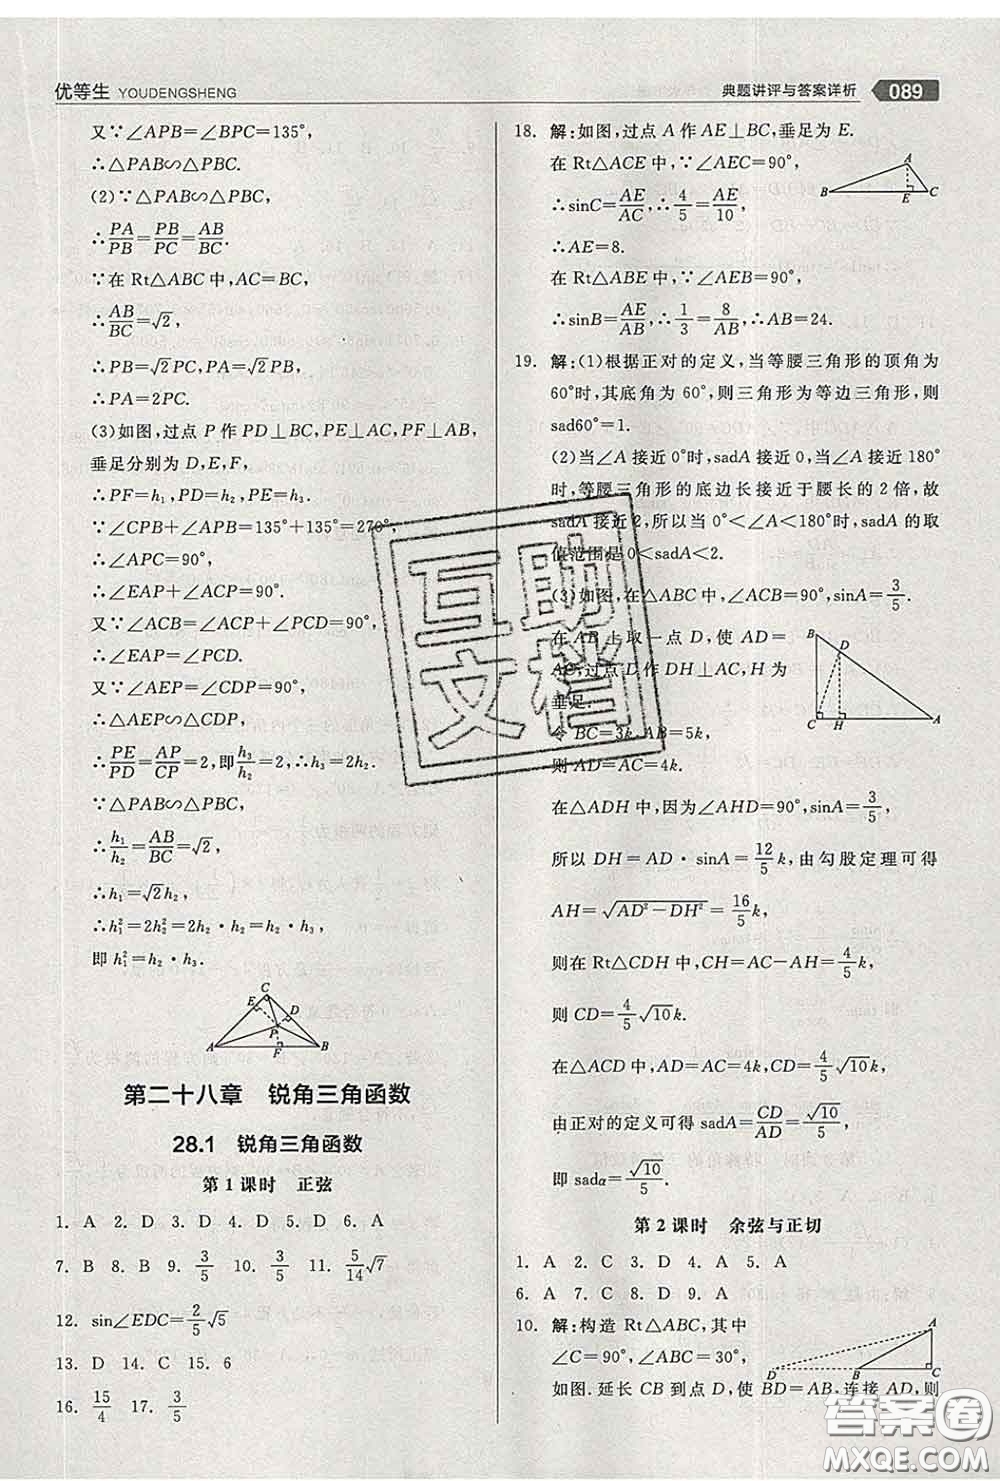 优等生 YOUDENGSHENG
典题讲评与答案详析 089
又∵∠APB=∠BPC=135°,
∴△PAB∽△PBC.
(2)∵△PAB∽△PBC,
∴PA/PB=PB/PC=AB/BC.
∵在 Rt△ABC 中,AC=BC,
∴AB/BC=√2,
∴PB=√2PC,PA=√2PB,
∴PA=2PC.
(3)如图,过点 P 作 PD⊥BC,PE⊥AC,PF⊥AB,
垂足分别为 D,E,F,
∴PF=h₁,PD=h₂,PE=h₃.
∵∠CPB+∠APB=135°+135°=270°,
∴∠APC=90°,
∴∠EAP+∠ACP=90°.
又∵∠ACB=∠ACP+∠PCD=90°,
∴∠EAP=∠PCD.
又∵∠AEP=∠CDP=90°,
∴△AEP∽△CDP,
∴PE/PD=AP/CP=2,即h₃/h₂=2,∴h₃=2h₂.
∵△PAB∽△PBC,
∴h₁/h₂=AB/BC=√2,
∴h₁=√2h₂,
∴h₁²=2h₂²=2h₂·h₂=h₂·h₃,
即 h₁²=h₂·h₃.
C
E
D
P
A
F
B
第二十八章 锐角三角函数
28.1 锐角三角函数
第 1 课时 正弦
1. A 2. D 3. D 4. D 5. D 6. A
7. B 8. D 9. 3/5 10. 3/5 11. 5/14√7
12. sin∠EDC=2/5√5
13. D 14. C 15. 6
16. 15/4 17. 3/5
18. 解:如图,过点 A 作 AE⊥BC,垂足为 E.
在 Rt△ACE 中,∵∠AEC=90°,
∴sinC=AE/AC,∴4/5=AE/10,
∴AE=8.
在 Rt△ABE 中,∵∠AEB=90°,
∴sinB=AE/AB,∴1/3=8/AB,∴AB=24.
A
B
E
C
19. 解:(1)根据正对的定义,当等腰三角形的顶角为
60°时,其底角为 60°,则三角形为等边三角形,则
sad60°=1.
(2)当∠A 接近 0°时,sadA 接近 0,当∠A 接近 180°
时,等腰三角形的底边长接近于腰长的 2 倍,故
sadA 接近 2,所以当 0°<∠A<180°时,sadA 的取
值范围是 0<sadA<2.
(3)如图,在△ABC 中,∠ACB=90°,sinA=3/5.
在 AB 上取一点 D,使 AD=
AC,过点 D 作 DH⊥AC,H 为
垂足.
令 BC=3k,AB=5k,
则 AD=AC=4k.
B
D
C
H
A
在△ADH 中,因为∠AHD=90°,sinA=3/5,
所以 DH=AD·sinA=12/5k,由勾股定理可得
AH=√(AD²-DH²)=16/5k.
则在 Rt△CDH 中,CH=AC-AH=4/5k,
则 CD=4/5√10k.
在△ACD 中,AD=AC=4k,CD=4/5√10k,
由正对的定义可得 sadA=CD/AD=√10/5,
即 sadα=√10/5.
第 2 课时 余弦与正切
1. A 2. C 3. D 4. A 5. A
6. A 7. C 8. D 9. A
10. 解:构造 Rt△ABC,其中
∠C=90°,∠ABC=30°,
如图.延长 CB 到点 D,使 BD=AB,连接 AD,则
A
D
B
C
互助文档
答案圈
MXQE.COM